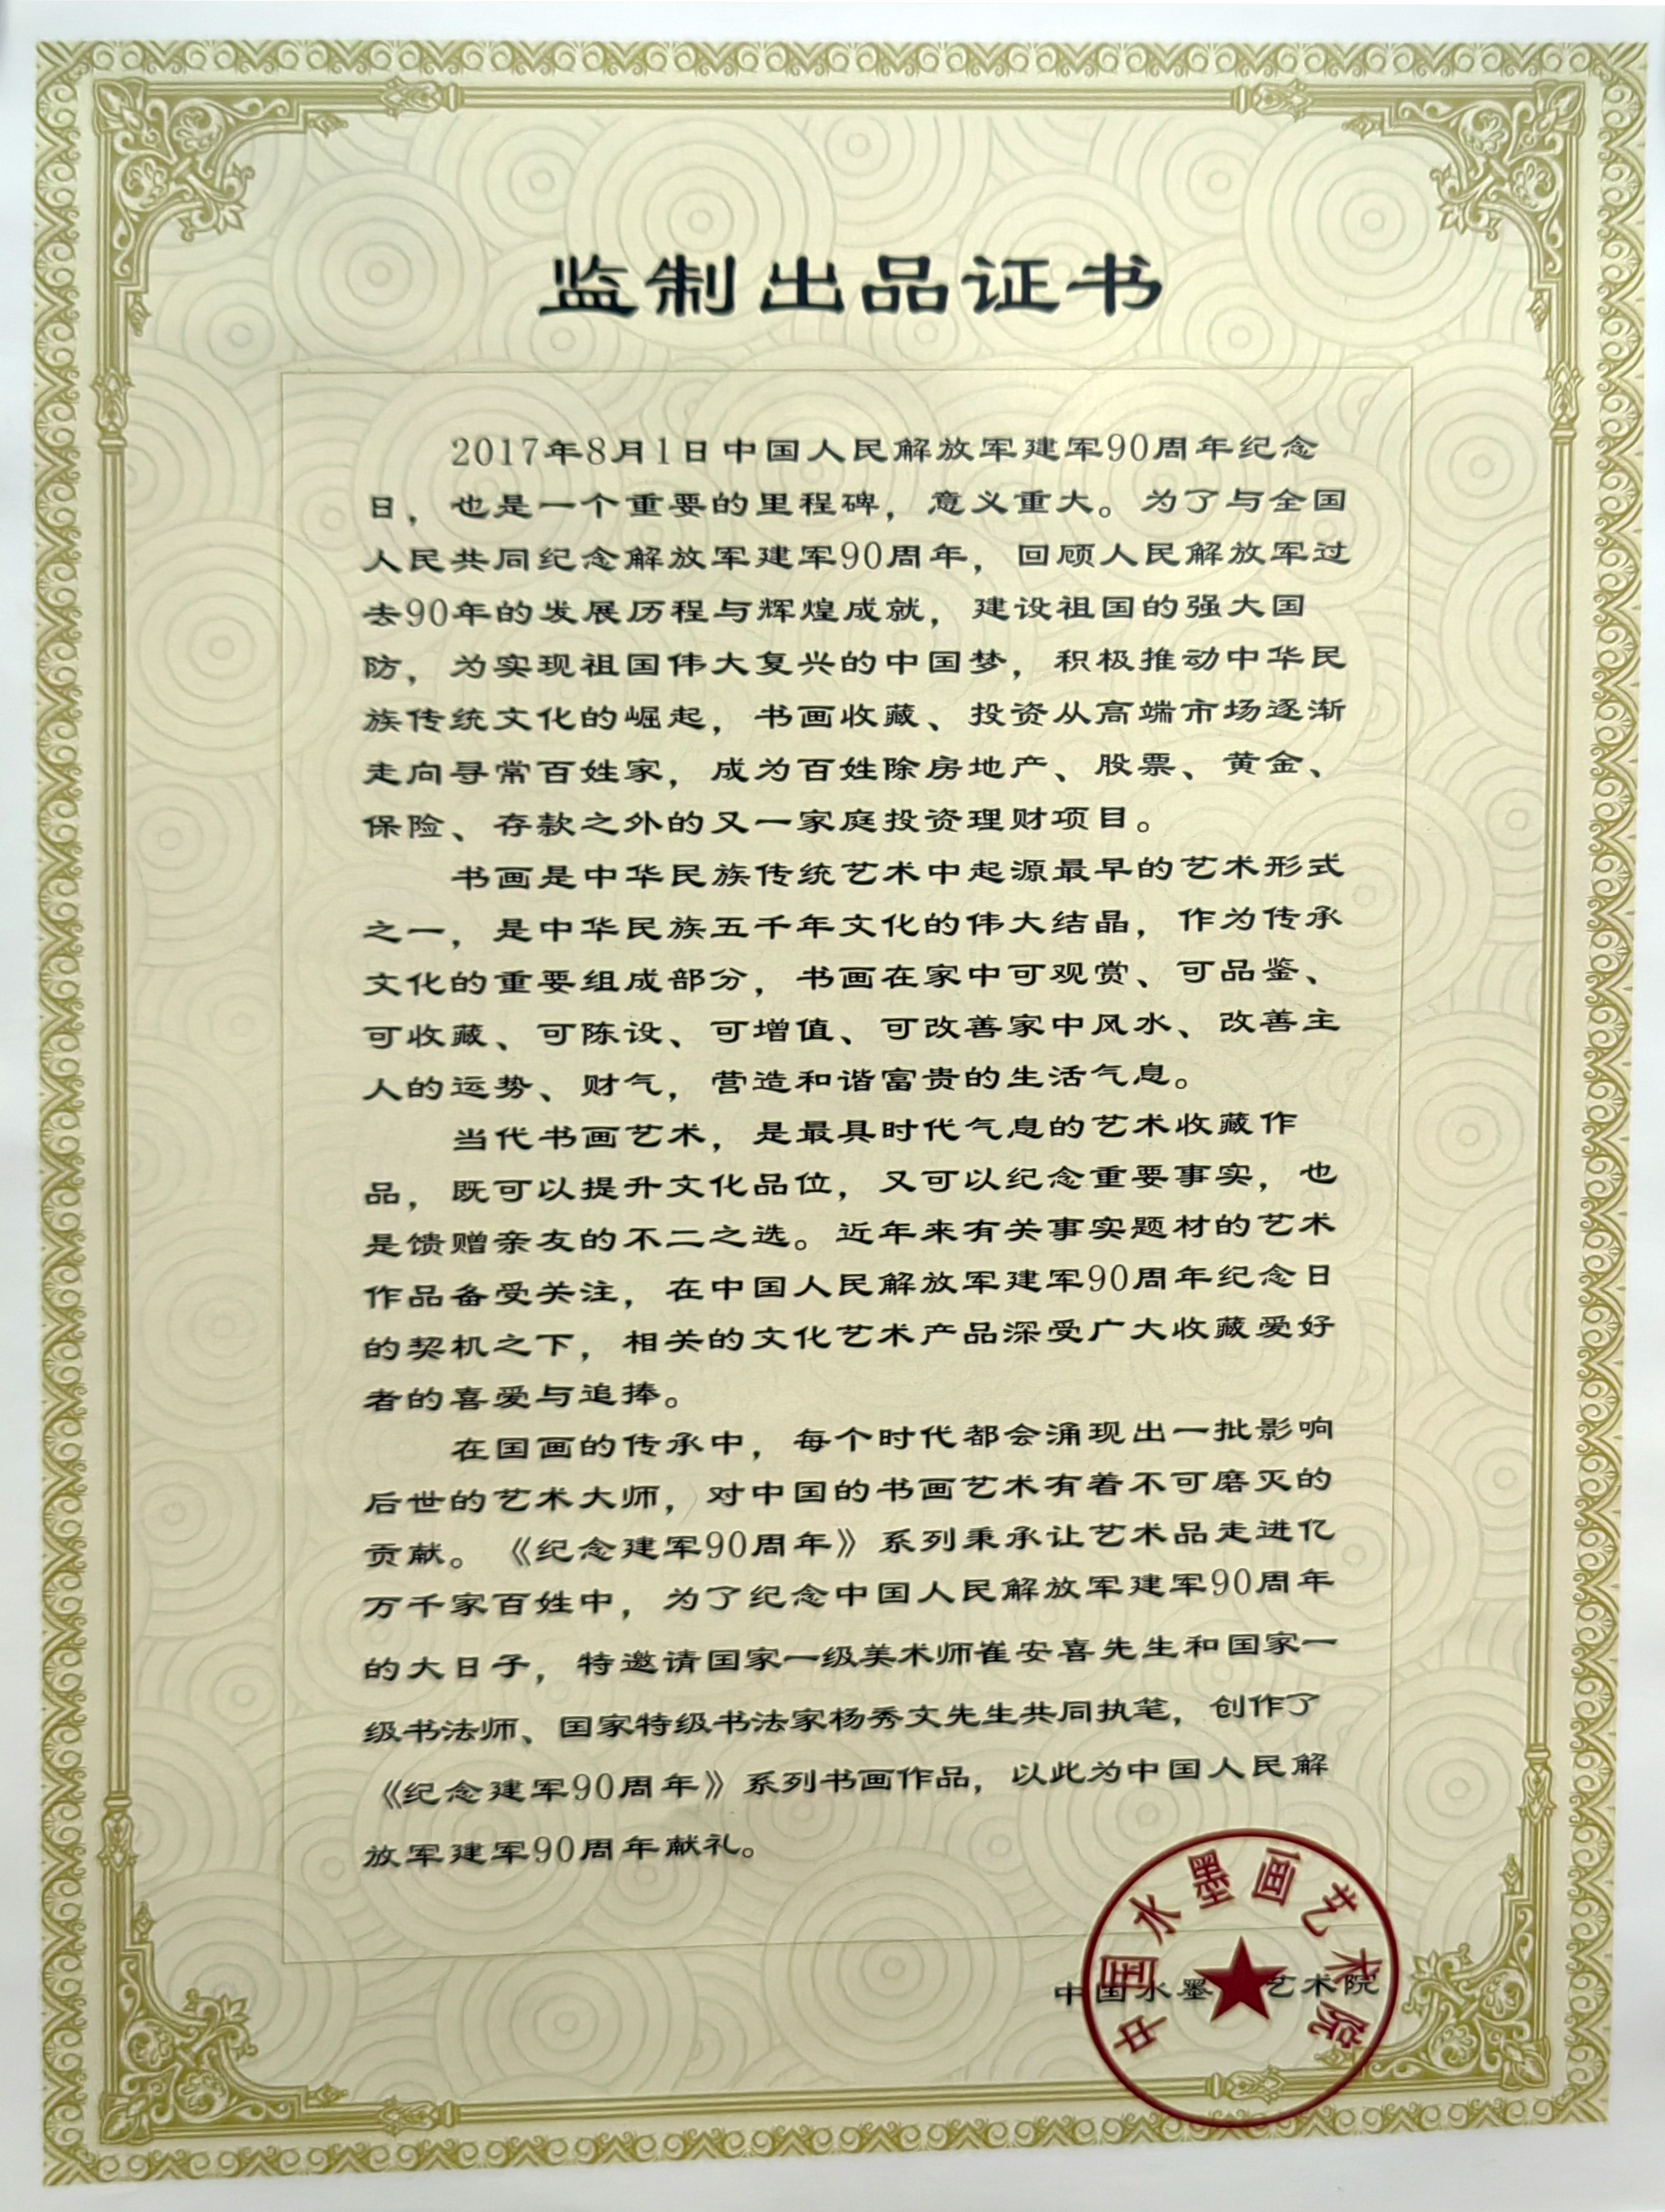 监制出品证书
2017年8月1日中国人民解放军建军90周年纪念
日，也是一个重要的里程碑，意义重大。为了与全国
人民共同纪念解放军建军90周年，回顾人民解放军过
去90年的发展历程与辉煌成就，建设祖国的强大国
防，为实现祖国伟大复兴的中国梦，积极推动中华民
族传统文化的崛起，书画收藏、投资从高端市场逐渐
走向寻常百姓家，成为百姓除房地产、股票、黄金、
保险、存款之外的又一家庭投资理财项目。
书画是中华民族传统艺术中起源最早的艺术形式
之一，是中华民族五千年文化的伟大结晶，作为传承
文化的重要组成部分，书画在家中可观赏、可品鉴、
可收藏、可陈设、可增值、可改善家中风水、改善主
人的运势、财气，营造和谐富贵的生活气息。
当代书画艺术，是最具时代气息的艺术收藏作
品，既可以提升文化品位，又可以纪念重要事实，也
是馈赠亲友的不二之选。近年来有关事实题材的艺术
作品备受关注，在中国人民解放军建军90周年纪念日
的契机之下，相关的文化艺术产品深受广大收藏爱好
者的喜爱与追捧。
在国画的传承中，每个时代都会涌现出一批影响
后世的艺术大师，对中国的书画艺术有着不可磨灭的
贡献。《纪念建军90周年》系列秉承让艺术品走进亿
万千家百姓中，为了纪念中国人民解放军建军90周年
的大日子，特邀请国家一级美术师崔安喜先生和国家一
级书法师、国家特级书法家杨秀文先生共同执笔，创作了
《纪念建军90周年》系列书画作品，以此为中国人民解
放军建军90周年献礼。
中国水墨艺术院
中国水墨画艺术院